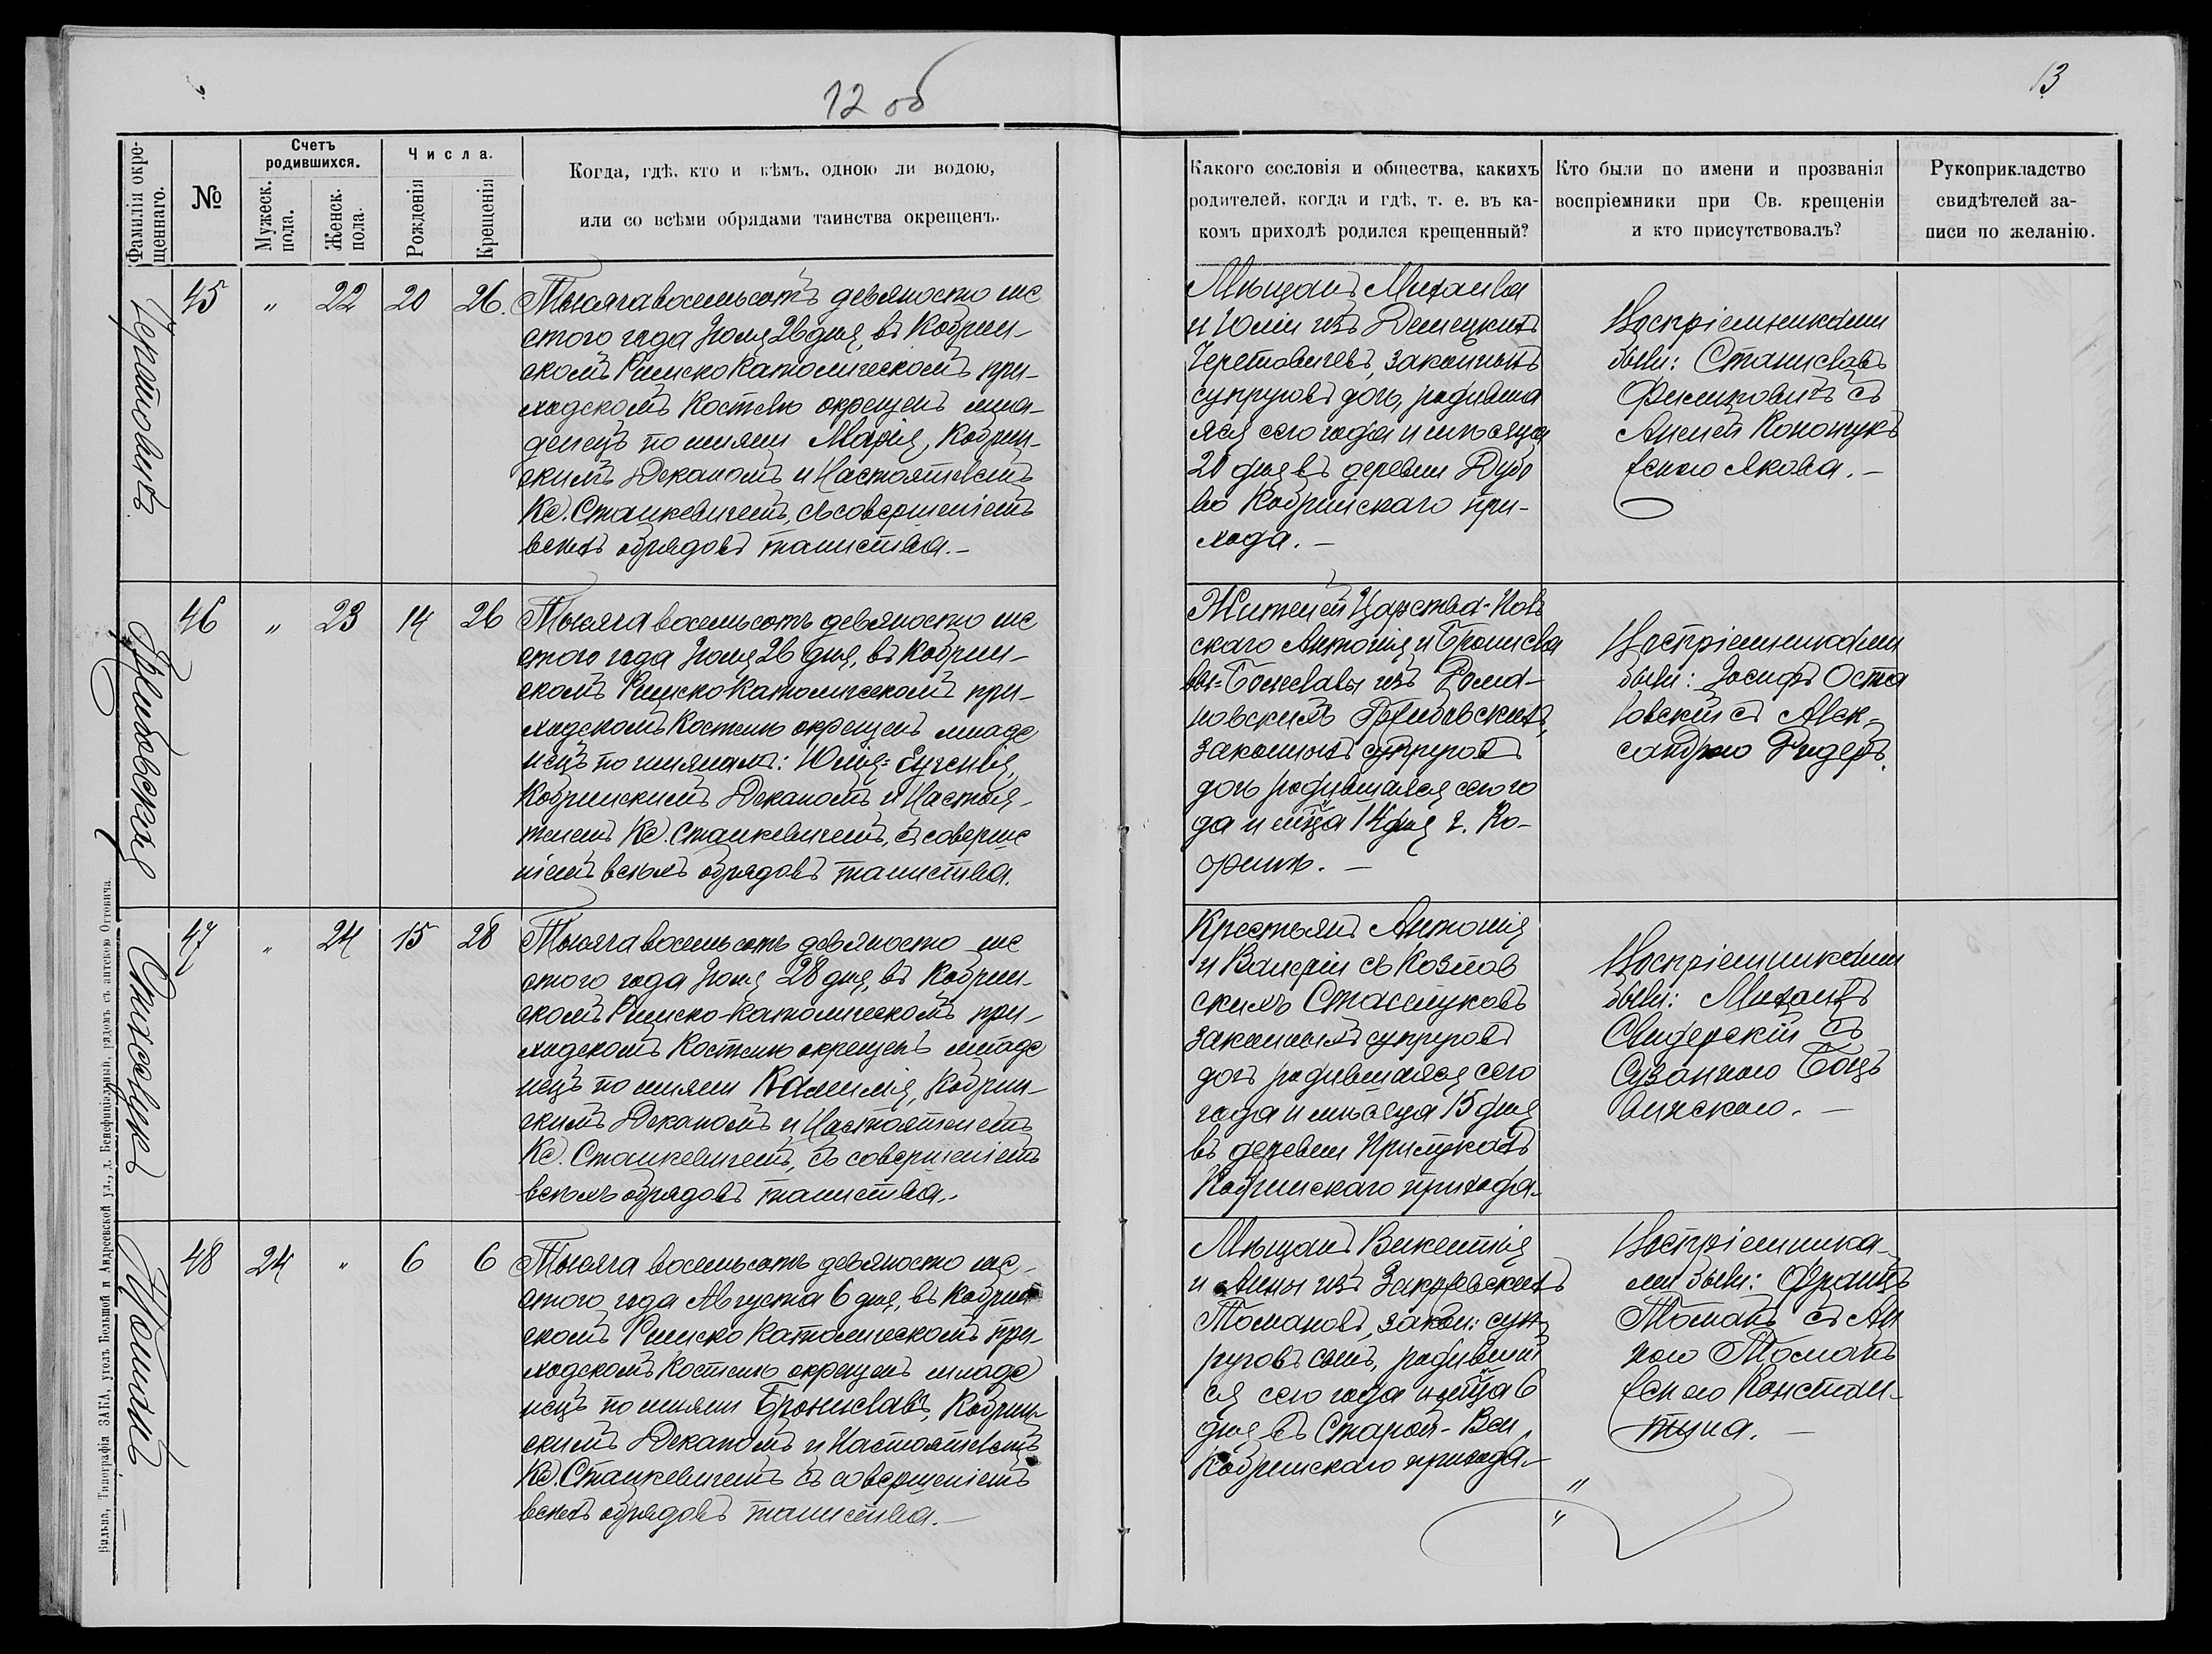 12 об
13
Фамилія окре-
щеннаго.
№
Счетъ
родившихся.
Мужеск.
пола.
Женск.
пола.
Числа.
Рожденія
Крещенія
Когда, гдѣ, кто и кѣмъ, одною ли водою,
или со всѣми обрядами таинства окрещенъ.
Какого сословія и общества, какихъ
родителей, когда и гдѣ, т. е. въ ка-
комъ приходѣ родился крещенный?
Кто были по имени и прозванія
воспріемники при Св. крещеніи
и кто присутствовалъ?
Рукоприкладство
свидѣтелей за-
писи по желанію.
45 „ 22 20 26.
Тысяча восемьсотъ девяносто ше
стого года Іюля 26 дня, въ Кобрин-
скомъ Римско Католическомъ при-
ходскомъ Костелѣ окрещенъ мла-
денецъ по имени Марія, Кобрин-
скимъ Деканомъ и Настоятелемъ
Кс. Станкевичемъ, съ совершеніемъ
всѣхъ обрядовъ таинства.-
Мѣщанъ Михаила
и Юліи изъ
законныхъ
супруговъ дочь, родивша
яся сего года и мѣсяца
20 дня въ деревни Дубо
во Кобринскаго при-
хода. -
Воспріемниками
были: Станиславъ
съ
Якова. -
46 „ 23 14 26
Тысяча восемьсотъ девяносто ше
стого года Іюля 26 дня, въ Кобрин-
скомъ Римско Католическомъ при-
ходскомъ Костелѣ окрещенъ младе
нецъ по именамъ: Юлія-Евгенія,
Кобринскимъ Деканомъ и Настоя-
телемъ Кс. Станкевичемъ, съ соверше
ніемъ всѣхъ обрядовъ таинства.
Жителей Царства-Поль
скаго Антонія и Брониславы
изъ Рома-
новскихъ
законныхъ супруговъ
дочь родившаяся сего го
да и мѣца 14 дня г. Ко-
бринѣ. -
Воспріемниками
были: Іосифъ Оста
ловскій съ Алек-
сандрою Ридеръ.
Стасюкъ
47 „ 24 15 28
Тысяча восемьсотъ девяносто ше
стого года Іюля 28 дня, въ Кобрин-
скомъ Римско-Католическомъ при-
ходскомъ Костелѣ окрещенъ младе
нецъ по имени Камилія, Кобрин-
скимъ Деканомъ и Настоятелемъ
Кс. Станкевичемъ, съ совершеніемъ
всѣхъ обрядовъ таинства.-
Крестьянъ Антонія
и Валеріи съ Козлов
скихъ Стасюковъ
законныхъ супруговъ
дочь родившаяся сего
года и мѣсяца 15 дня
въ деревни Прилукахъ
Кобринскаго прихода.
Воспріемниками
были: Михаилъ
Свидерскій съ
Сузанною
Томанъ
48 24 „ 6 6
Тысяча восемьсотъ девяносто ше-
стого года Августа 6 дня, въ Кобрин
скомъ Римско Католическомъ при-
ходскомъ Костелѣ окрещенъ младе
нецъ по имени Брониславъ, Кобрин-
скимъ Деканомъ и Настоятелемъ
Кс. Станкевичемъ съ совершеніемъ
всѣхъ обрядовъ таинства.-
Мѣщанъ Викентія
и Анны изъ Закржевскихъ
Томановъ, закон: суп-
руговъ сынъ, родившій
ся сего года и мѣца 6
дня въ Старой-Вси,
Кобринскаго прихода.-
Воспріемника-
ми были: Францъ
Томанъ съ Ан
ною Томанъ
женою Констан-
тина. -
Вильна, Типографія ЗАКА, уголъ Большой и Андреевской ул., д. Бенефиціальный, рядомъ съ аптекою Оттовича.